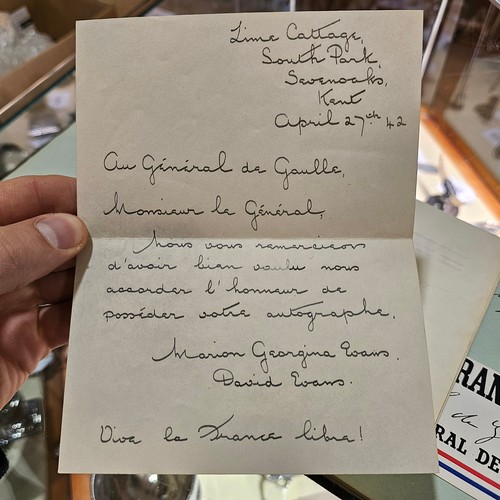 Lime Cottage,
South Park,
Sevenoaks,
Kent
April 27th 42
Au Général de Gaulle,
Monsieur le Général,
Nous vous remercions
d'avoir bien voulu nous
accorder l'honneur de
posséder votre autographe.
Marion Georgina Evans.
David Evans.
Viva la France libre!
RAN
de G
RAL DE